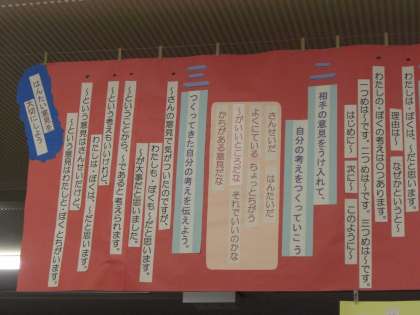 わたしは・ぼくは、～だと思います。
理由は～　なぜかというと～
わたしの・ぼくの考えは○つあります。
一つめは～です。二つめは～です。三つめは～です。
はじめに～　次に～　このように～
二
相手の意見をうけ入れて、
自分の考えをつくっていこう
さんせいだ　はんたいだ
よくにている　ちょっとちがう
～がいいところだな　それでいいのかな
かちがある意見だな
三
つくってきた自分の考えを伝えよう。
～さんの意見で気がついたのですが、
わたしも・ぼくも～だと思います。
～が大事だと思いました。
～ということから、～であると考えられます。
～という考えもいいけれど、
わたしは・ぼくは、～だと思います。
～という意見はさんせいだけど、
～という意見はわたしと・ぼくとちがいます。
はんたい意見を
大切にしよう